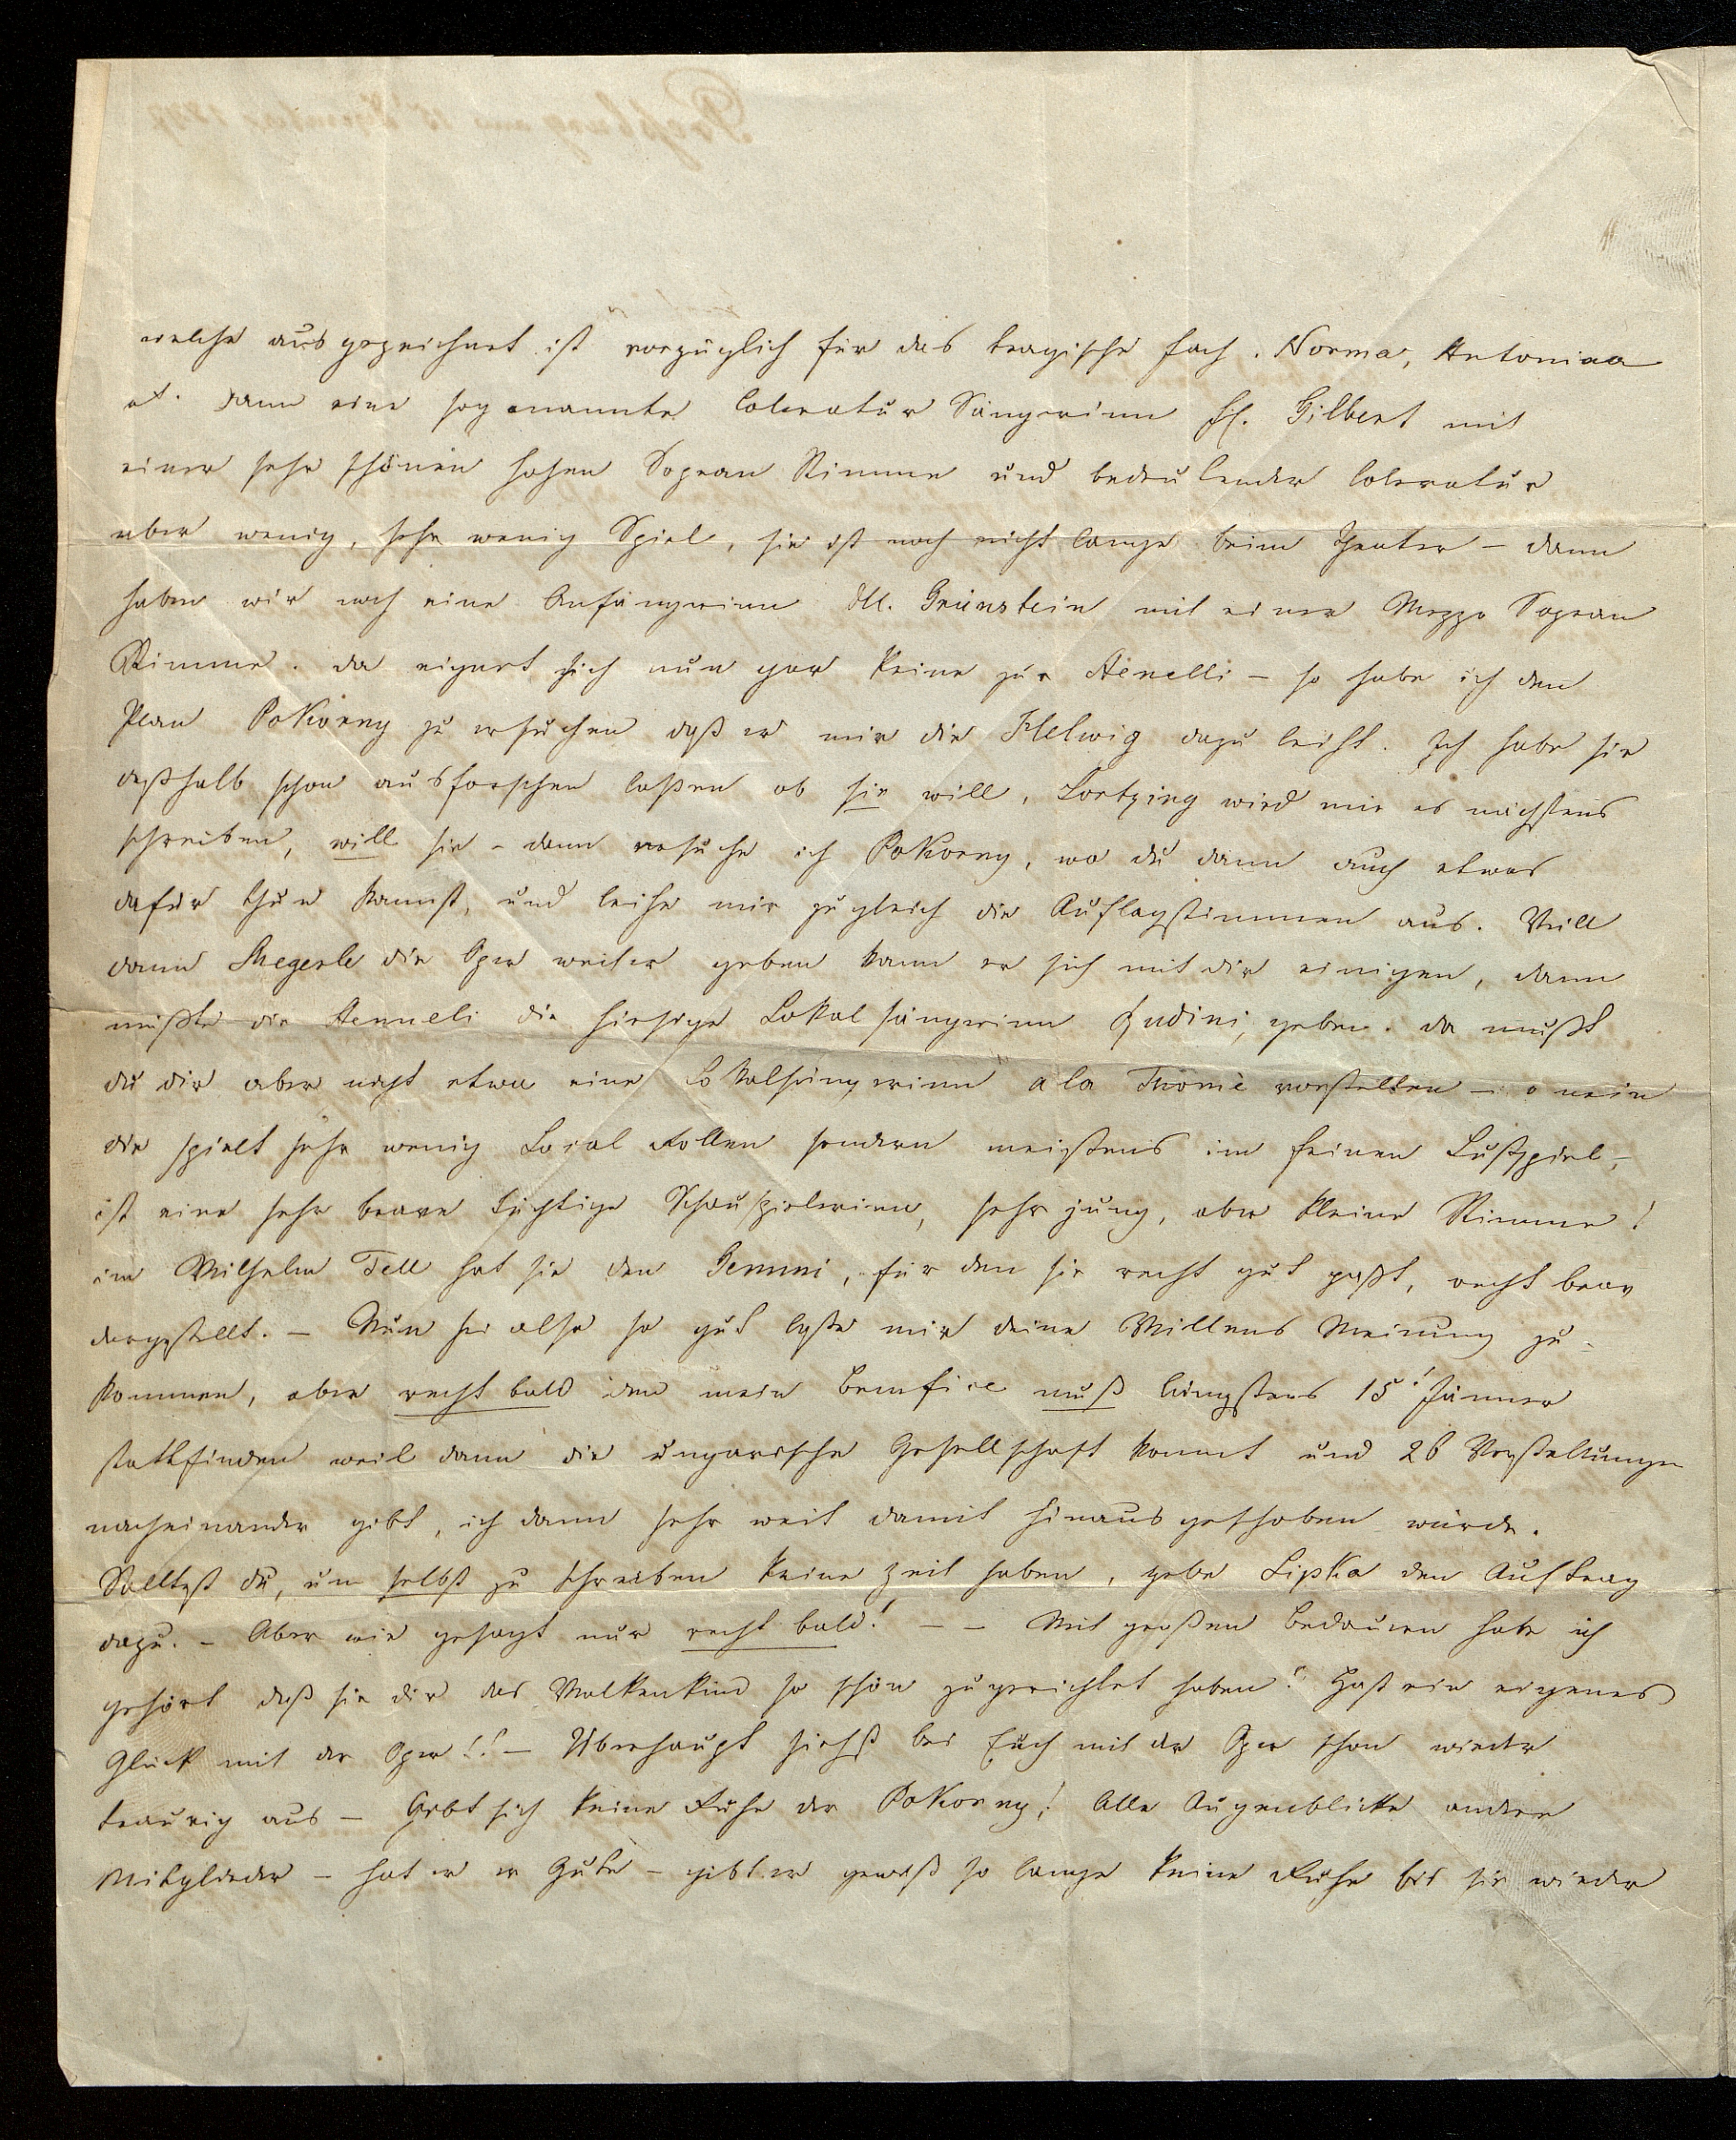 welche ausgezeichnet ist vorzüglich für das tragische Fach. Norma, Antonina
et. dann eine sogenannte Coloratur Sängerinn Fl. Gilbert mit
einer sehr schönen hohen Sopran Stimme und bedeutender Coloratur
aber wenig, sehr wenig Spiel, sie ist noch nicht lange beim Theater – dann
haben wir noch eine Anfängerinn Dll. Grünstein mit einer Mezzo Sopran
Stimme. da eignet sich nun gar keine zur Aenelli – so habe ich den
Plan Pokorny zu ersuchen daß er mir die Hellwig dazu leiht. Ich habe sie
deßhalb schon ausforschen laßen ob sie will, Lortzing wird mir es nächstens
schreiben, will sie – dann ersuche ich Pokorny, wo du dann auch etwas
dafür thun kannst, und leihe mir zugleich die Auflagstimmen aus. Will
dann Megerle die Oper weiter geben kann er sich mit dir einigen, dann
müßte die Aenneli die hiesige Lokalsängerinn Gudini, geben. da mußt
du dir aber nicht etwa eine Lokalsängerinn a la Thomé vorstellen – o nein
die spielt sehr wenig Local Rollen sondern meistens im feinen Lustspiel,
ist eine sehr brave tüchtige Schauspielerinn, sehr jung, aber kleine Stimme!
im Wilhelm Tell hat sie den Gemmi, für den sie recht gut paßt, recht brav
dargestellt. – Nun sei also so gut laße mir deine Willens Meinung zu-
kommen, aber recht bald den mein Benefice muß längstens 15t Jänner
stattfinden weil dann die ungarische Gesellschaft kommt und 26 Vorstellungen
nacheinander gibt, ich dann sehr weit damit hinausgeschoben würde.
Solltest du, um selbst zu schreiben keine Zeit haben, gebe Lipka den Auftrag
dazu. – Aber wie gesagt nur recht bald! – – Mit großen Bedauern habe ich
gehört daß sie dir das Wolkenkind so schön zugerichtet haben! Hast ein eigenes
Glück mit der Oper!! – Überhaupt siehst bei Euch mit der Oper schon wieder
traurig aus – Gebt sich keine Ruhe der Pokorny! Alle Augenblicke andere
Mitglieder – hat er er Gute – gibt er gewiß so lange keine Ruhe bis sie wieder